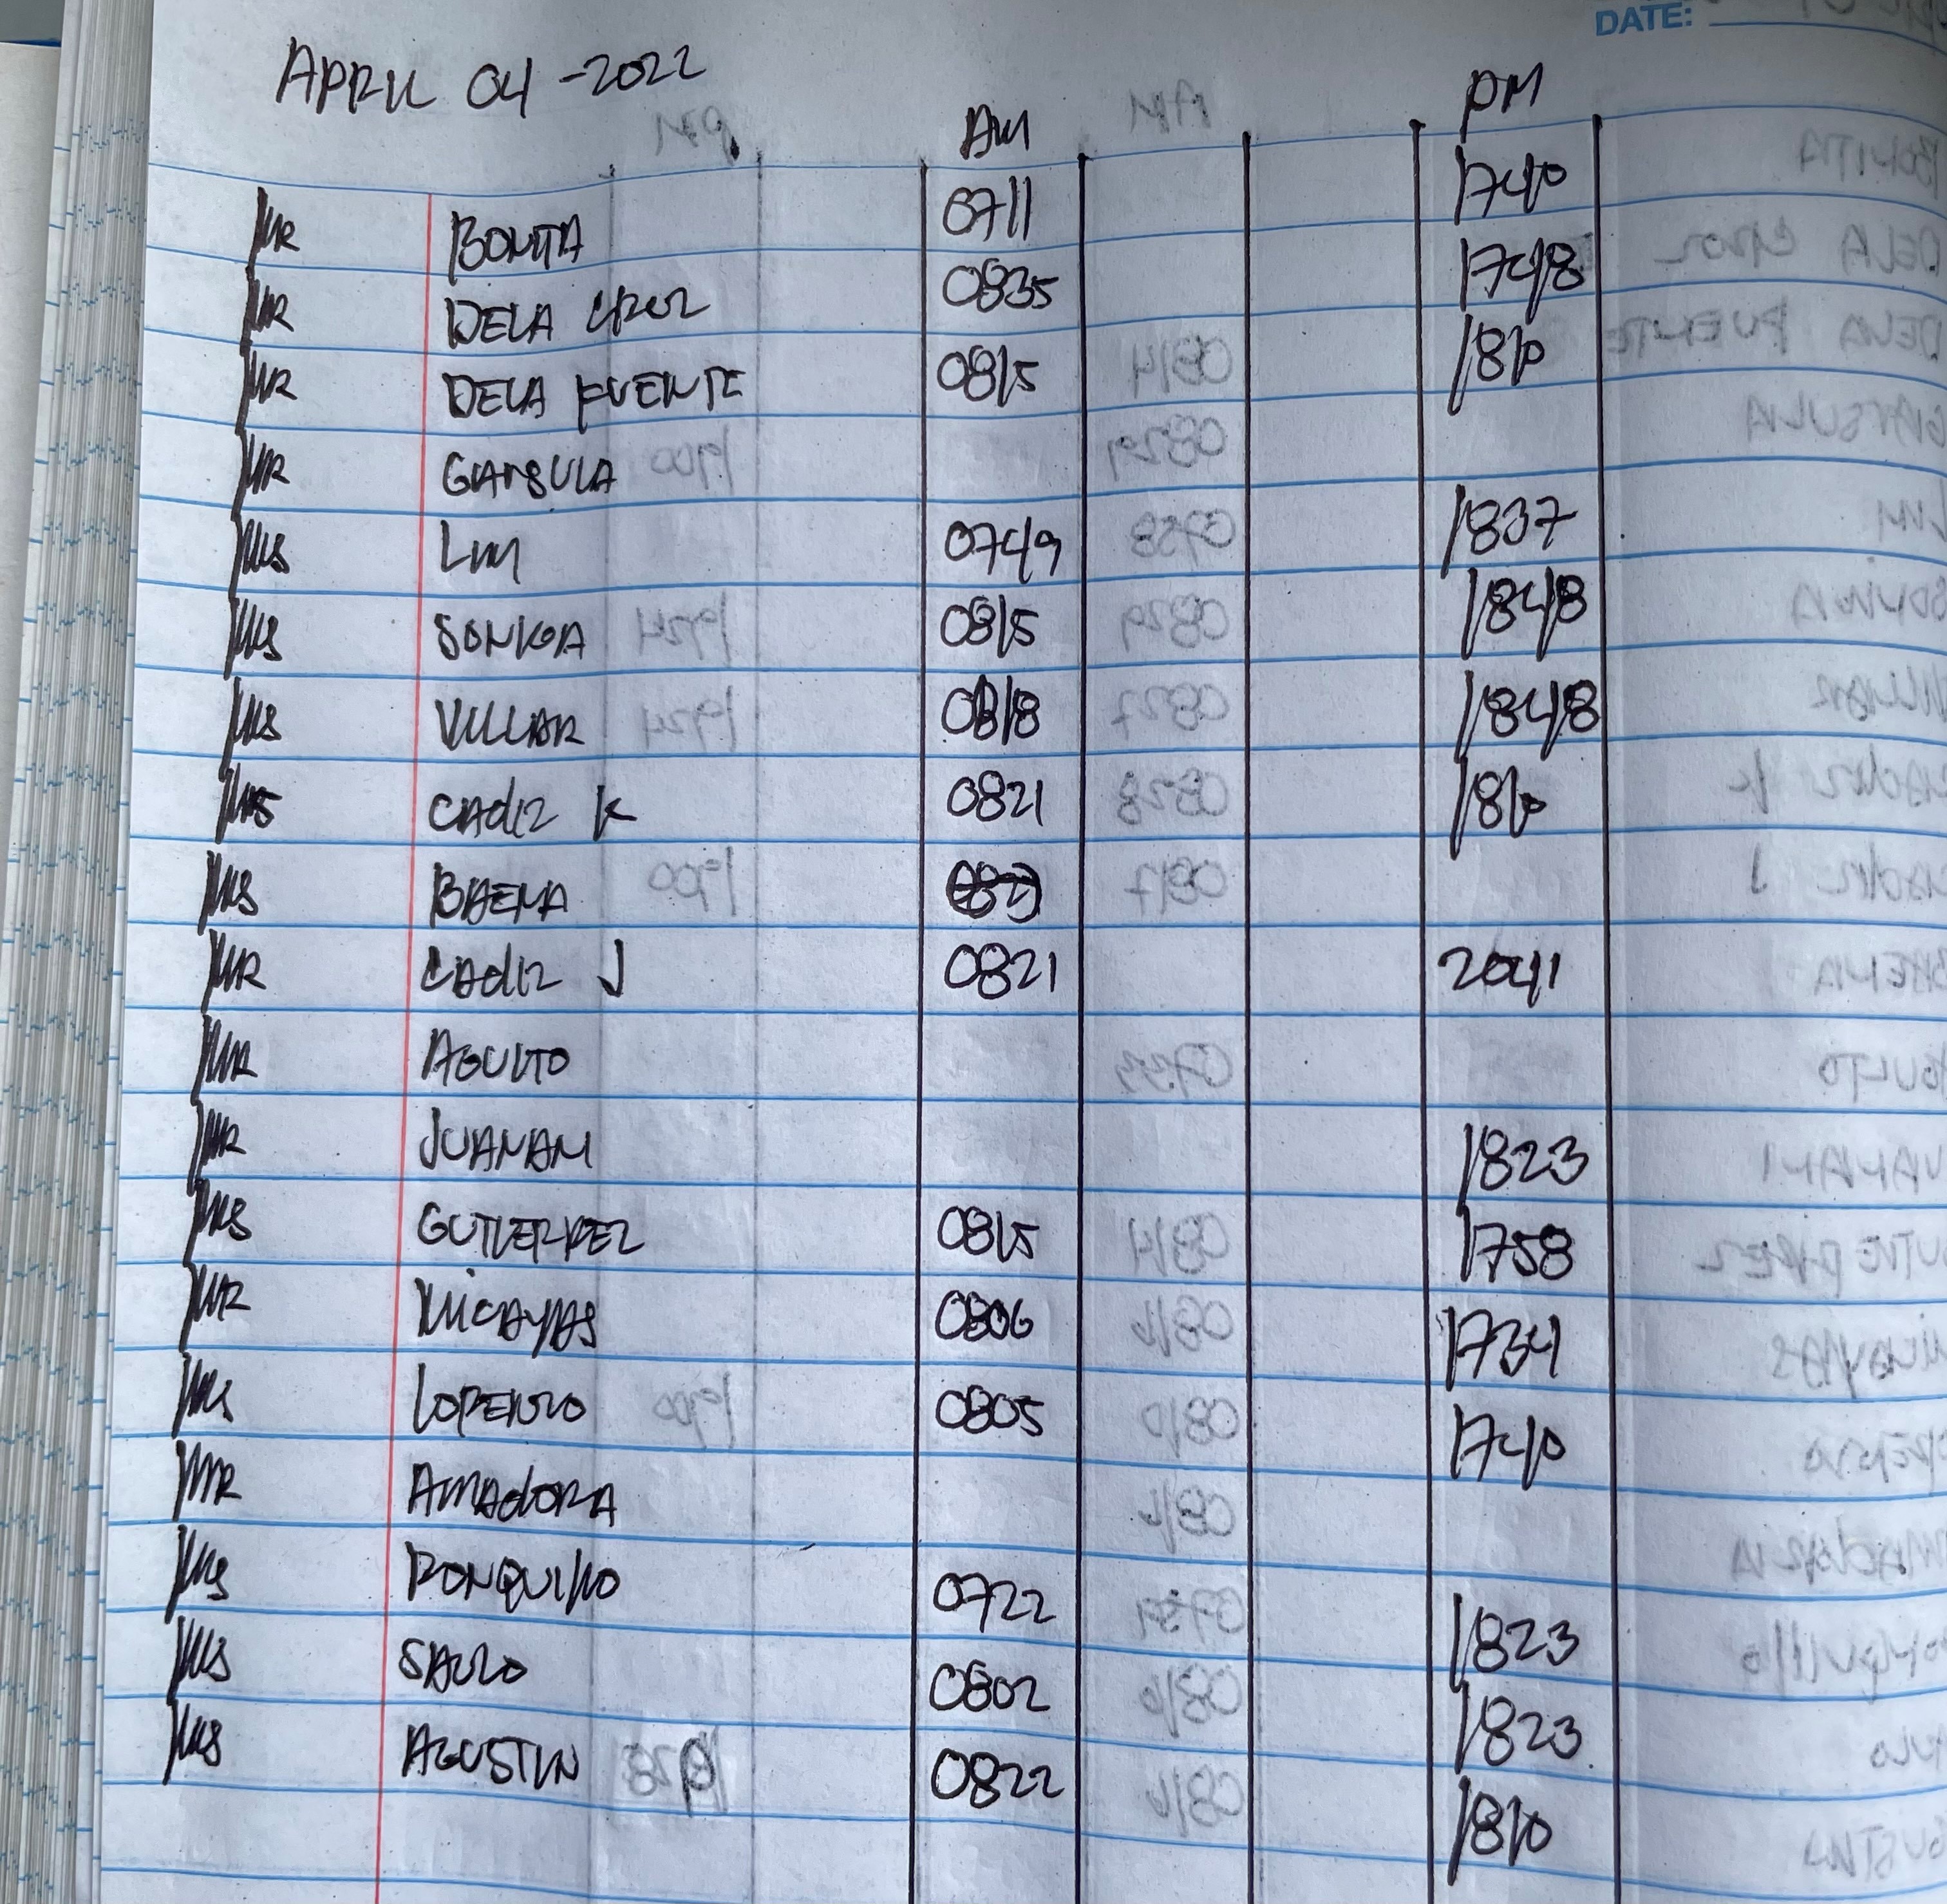 DATE:
APRIL 04-2022
AM PM
MR BONITA 0711 1740
MR DELA CRUZ 0835 1748
MR DELA FUENTE 0815 1810
MR GARSULA
MS LIM 0749 1837
MS SONKOA 0815 1848
MS VILLAR 0818 1848
MRS CADIZ K 0821 1810
MS BAENA
MR CADIZ J 0821 2041
MR AGULTO
MR JUANANI 1823
MS GUTIERREZ 0815 1758
MR MICAYAS 0806 1734
MS LORENZO 0805 1740
MR AMADORA
MS RONQUILLO 0722 1823
MS SAULO 0802 1823
MS AGUSTIN 0822 1810